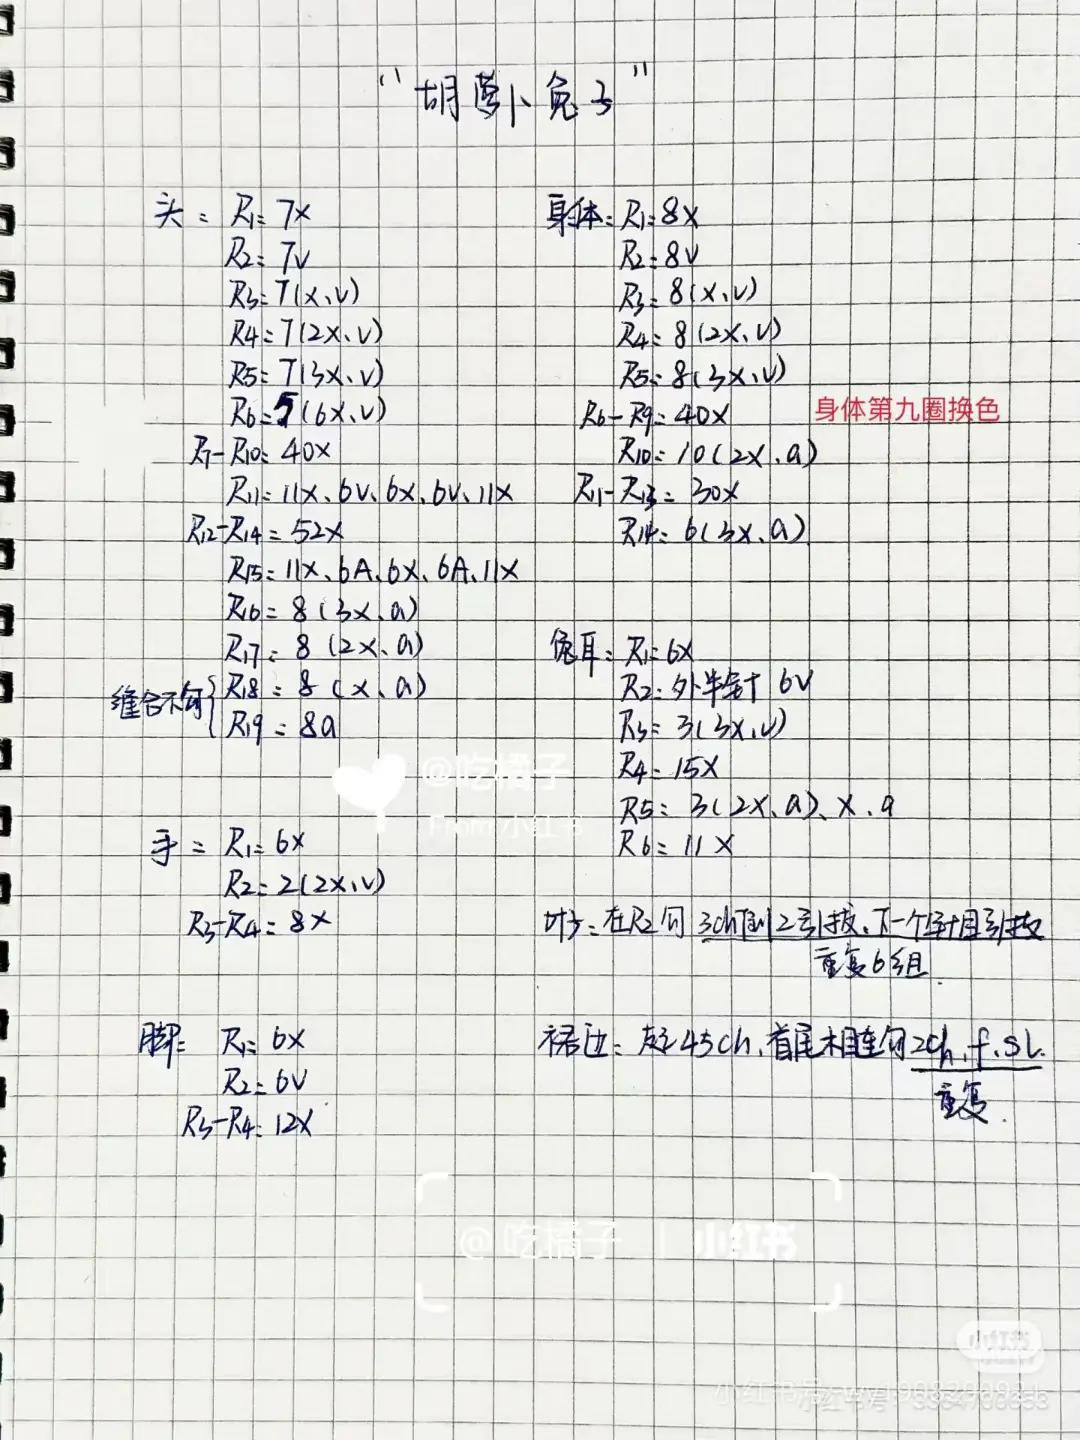 “胡萝卜兔子”
头：R1=7x
R2=7v
R3=7(x、v)
R4=7(2x、v)
R5=7(3x、v)
R6=5(6x、v)
R7-R10=40x
R11=11x、6v、6x、6v、11x
R12-R14=52x
R15=11x、6A、6x、6A、11x
R16=8(3x、a)
R17=8(2x、a)
缝合不钩{R18=8(x、a)
R19=8a
手：R1=6x
R2=2(2x、v)
R3-R4=8x
脚：R1=6x
R2=6v
R3-R4=12x
身体：R1=8x
R2=8v
R3=8(x、v)
R4=8(2x、v)
R5=8(3x、v)
R6-R9=40x
身体第九圈换色
R10=10(2x、a)
R11-R13=30x
R14=6(3x、a)
兔耳：R1=6x
R2=外半针 6v
R3=3(3x、v)
R4=15x
R5=3(2x、a)、x、a
R6=11x
叶子：在R2钩 3ch倒2引拔、下一个针目引拔
重复6组.
裙边：起45ch、首尾相连钩2ch、f、sl.
重复.
@吃橘子
From 小红书
@吃橘子 | 小红书
小红书